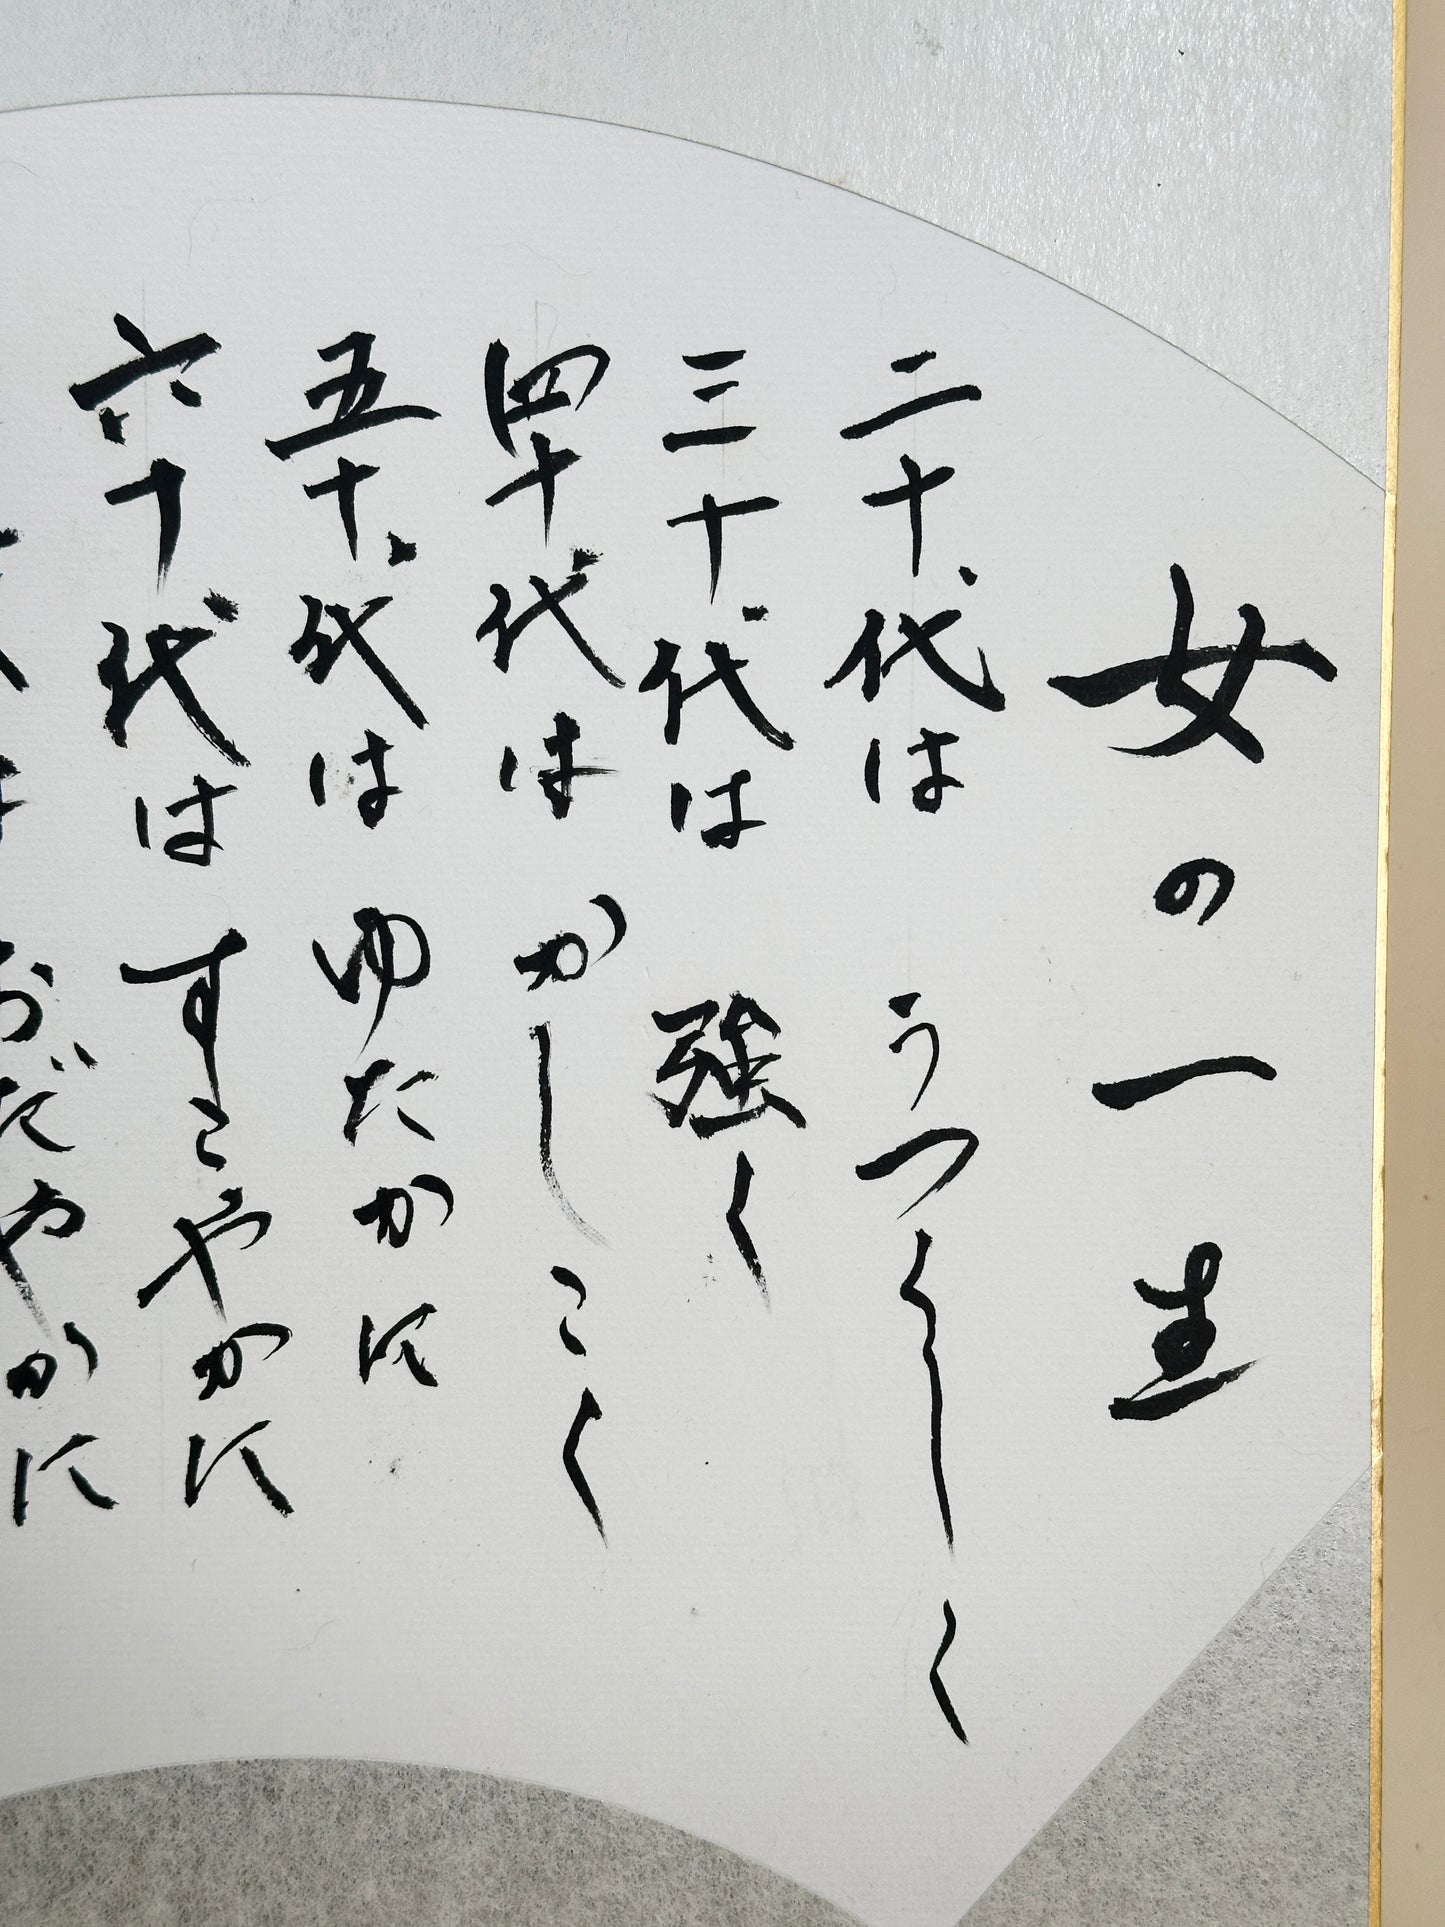 女の一生
二十代は うつくしく
三十代は 強く
四十代は かしこく
五十代は ゆたかに
六十代は すこやかに
おだやかに